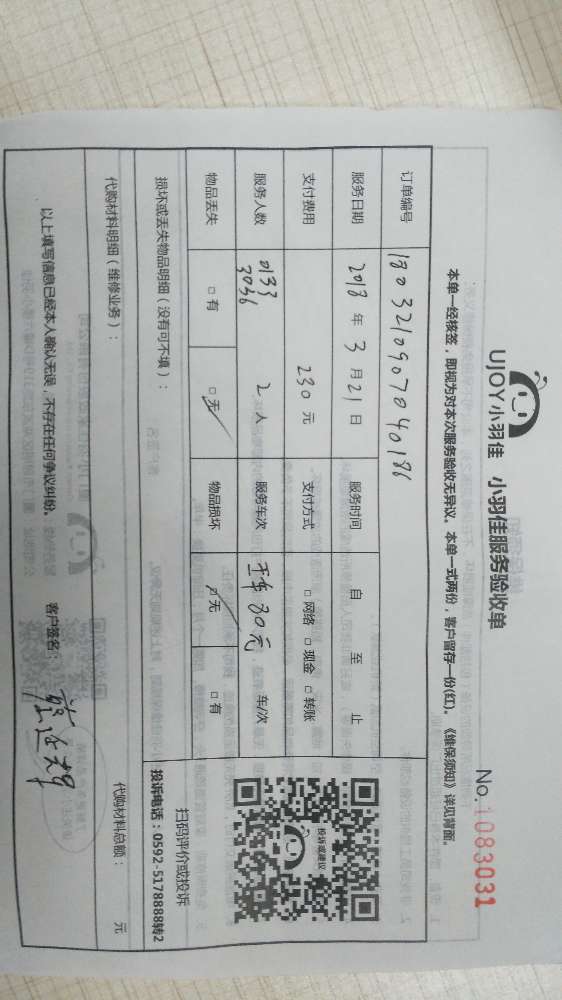 UJOY小羽佳 小羽佳服务验收单
No. 1083031
本单一经核签，即视为对本次服务验收无异议。本单一式两份，客户留存一份(红)。《维保须知》详见背面。
订单编号 1803210907040186
服务日期 2018 年 3 月 21 日 服务时间 自 至 止
支付费用 230 元 支付方式 □ 网络 □ 现金 □ 转账
服务人数 0133 3036 2 人 服务车次 30元 车/次
物品丢失 □ 有 □ 无 物品损坏 □ 无 □ 有
损坏或丢失物品明细（没有可不填）：
投诉或建议
扫码评价或投诉
投诉电话：0592-5178888转2
代购材料明细（维修业务）：
代购材料总额： 元
以上填写信息已经本人确认无误，不存在任何争议纠纷。 客户签名：